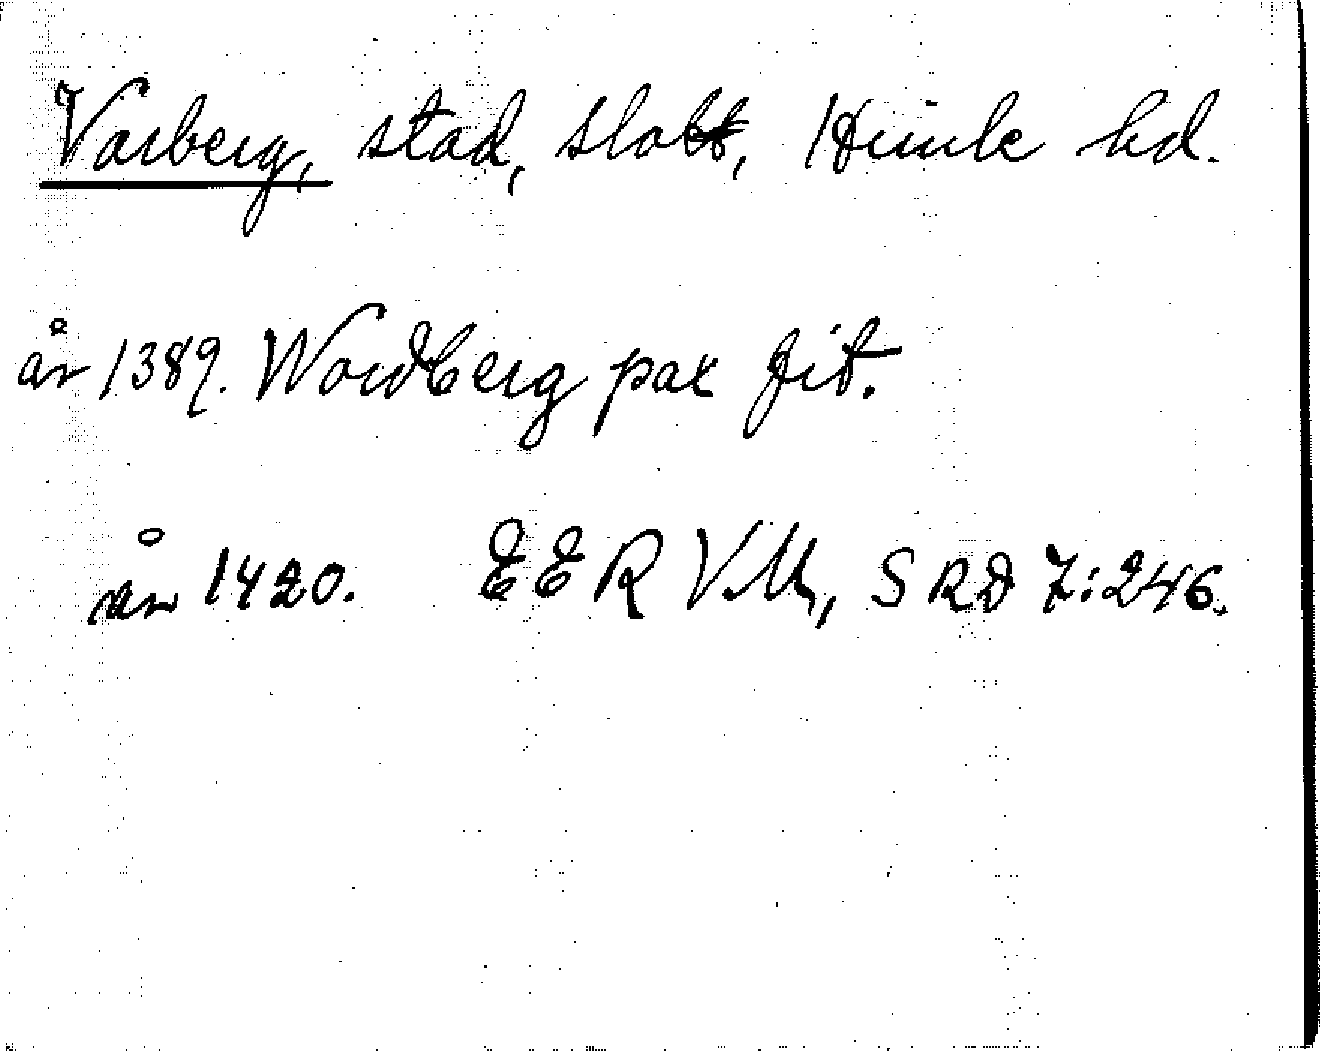 Varberg, stad, slott, Himle hd.
år 1389. Wordberg pax fit.
år 1420. EER V.M, SRD 7:246.